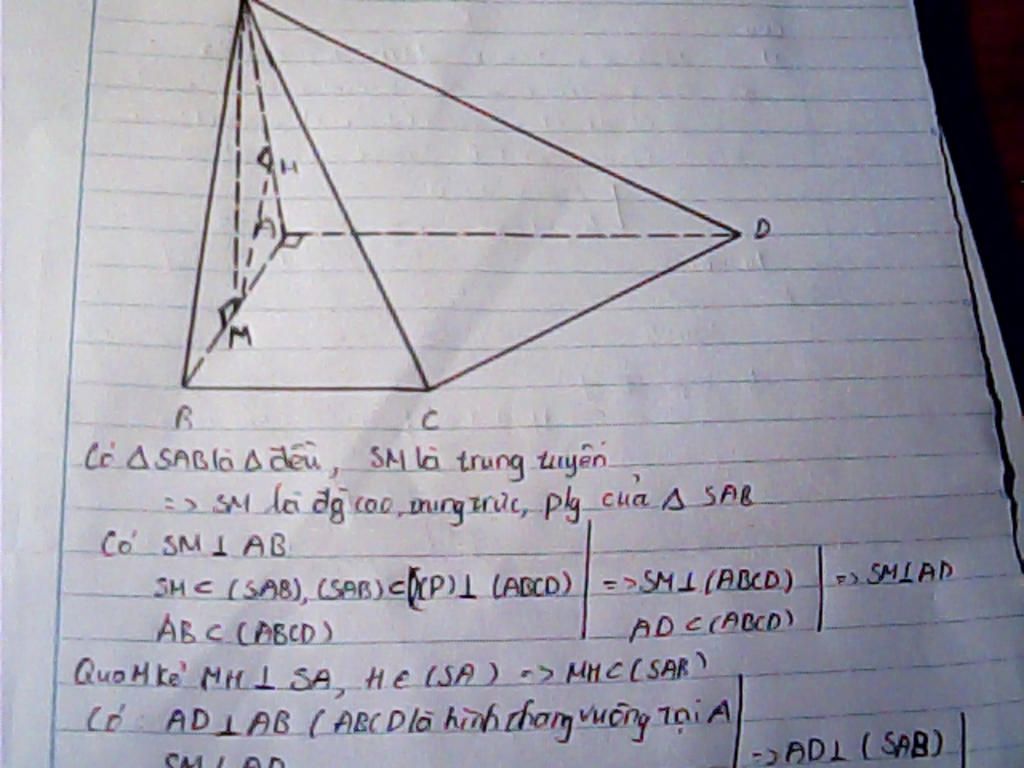 H
A
D
M
B
C
Có Δ SAB là Δ đều, SM là trung tuyến
=> SM là đg cao, trung trực, p/g của Δ SAB
Có SM ⊥ AB
SM ⊂ (SAB), (SAB) ⊂ (P) ⊥ (ABCD) => SM ⊥ (ABCD) => SM ⊥ AD
AB ⊂ (ABCD) AD ⊂ (ABCD)
Qua M kẻ MH ⊥ SA, H ∈ (SA) => MH ⊂ (SAB)
Có: AD ⊥ AB (ABCD là hình thang vuông tại A
=> AD ⊥ (SAB)
SM ⊥ AD